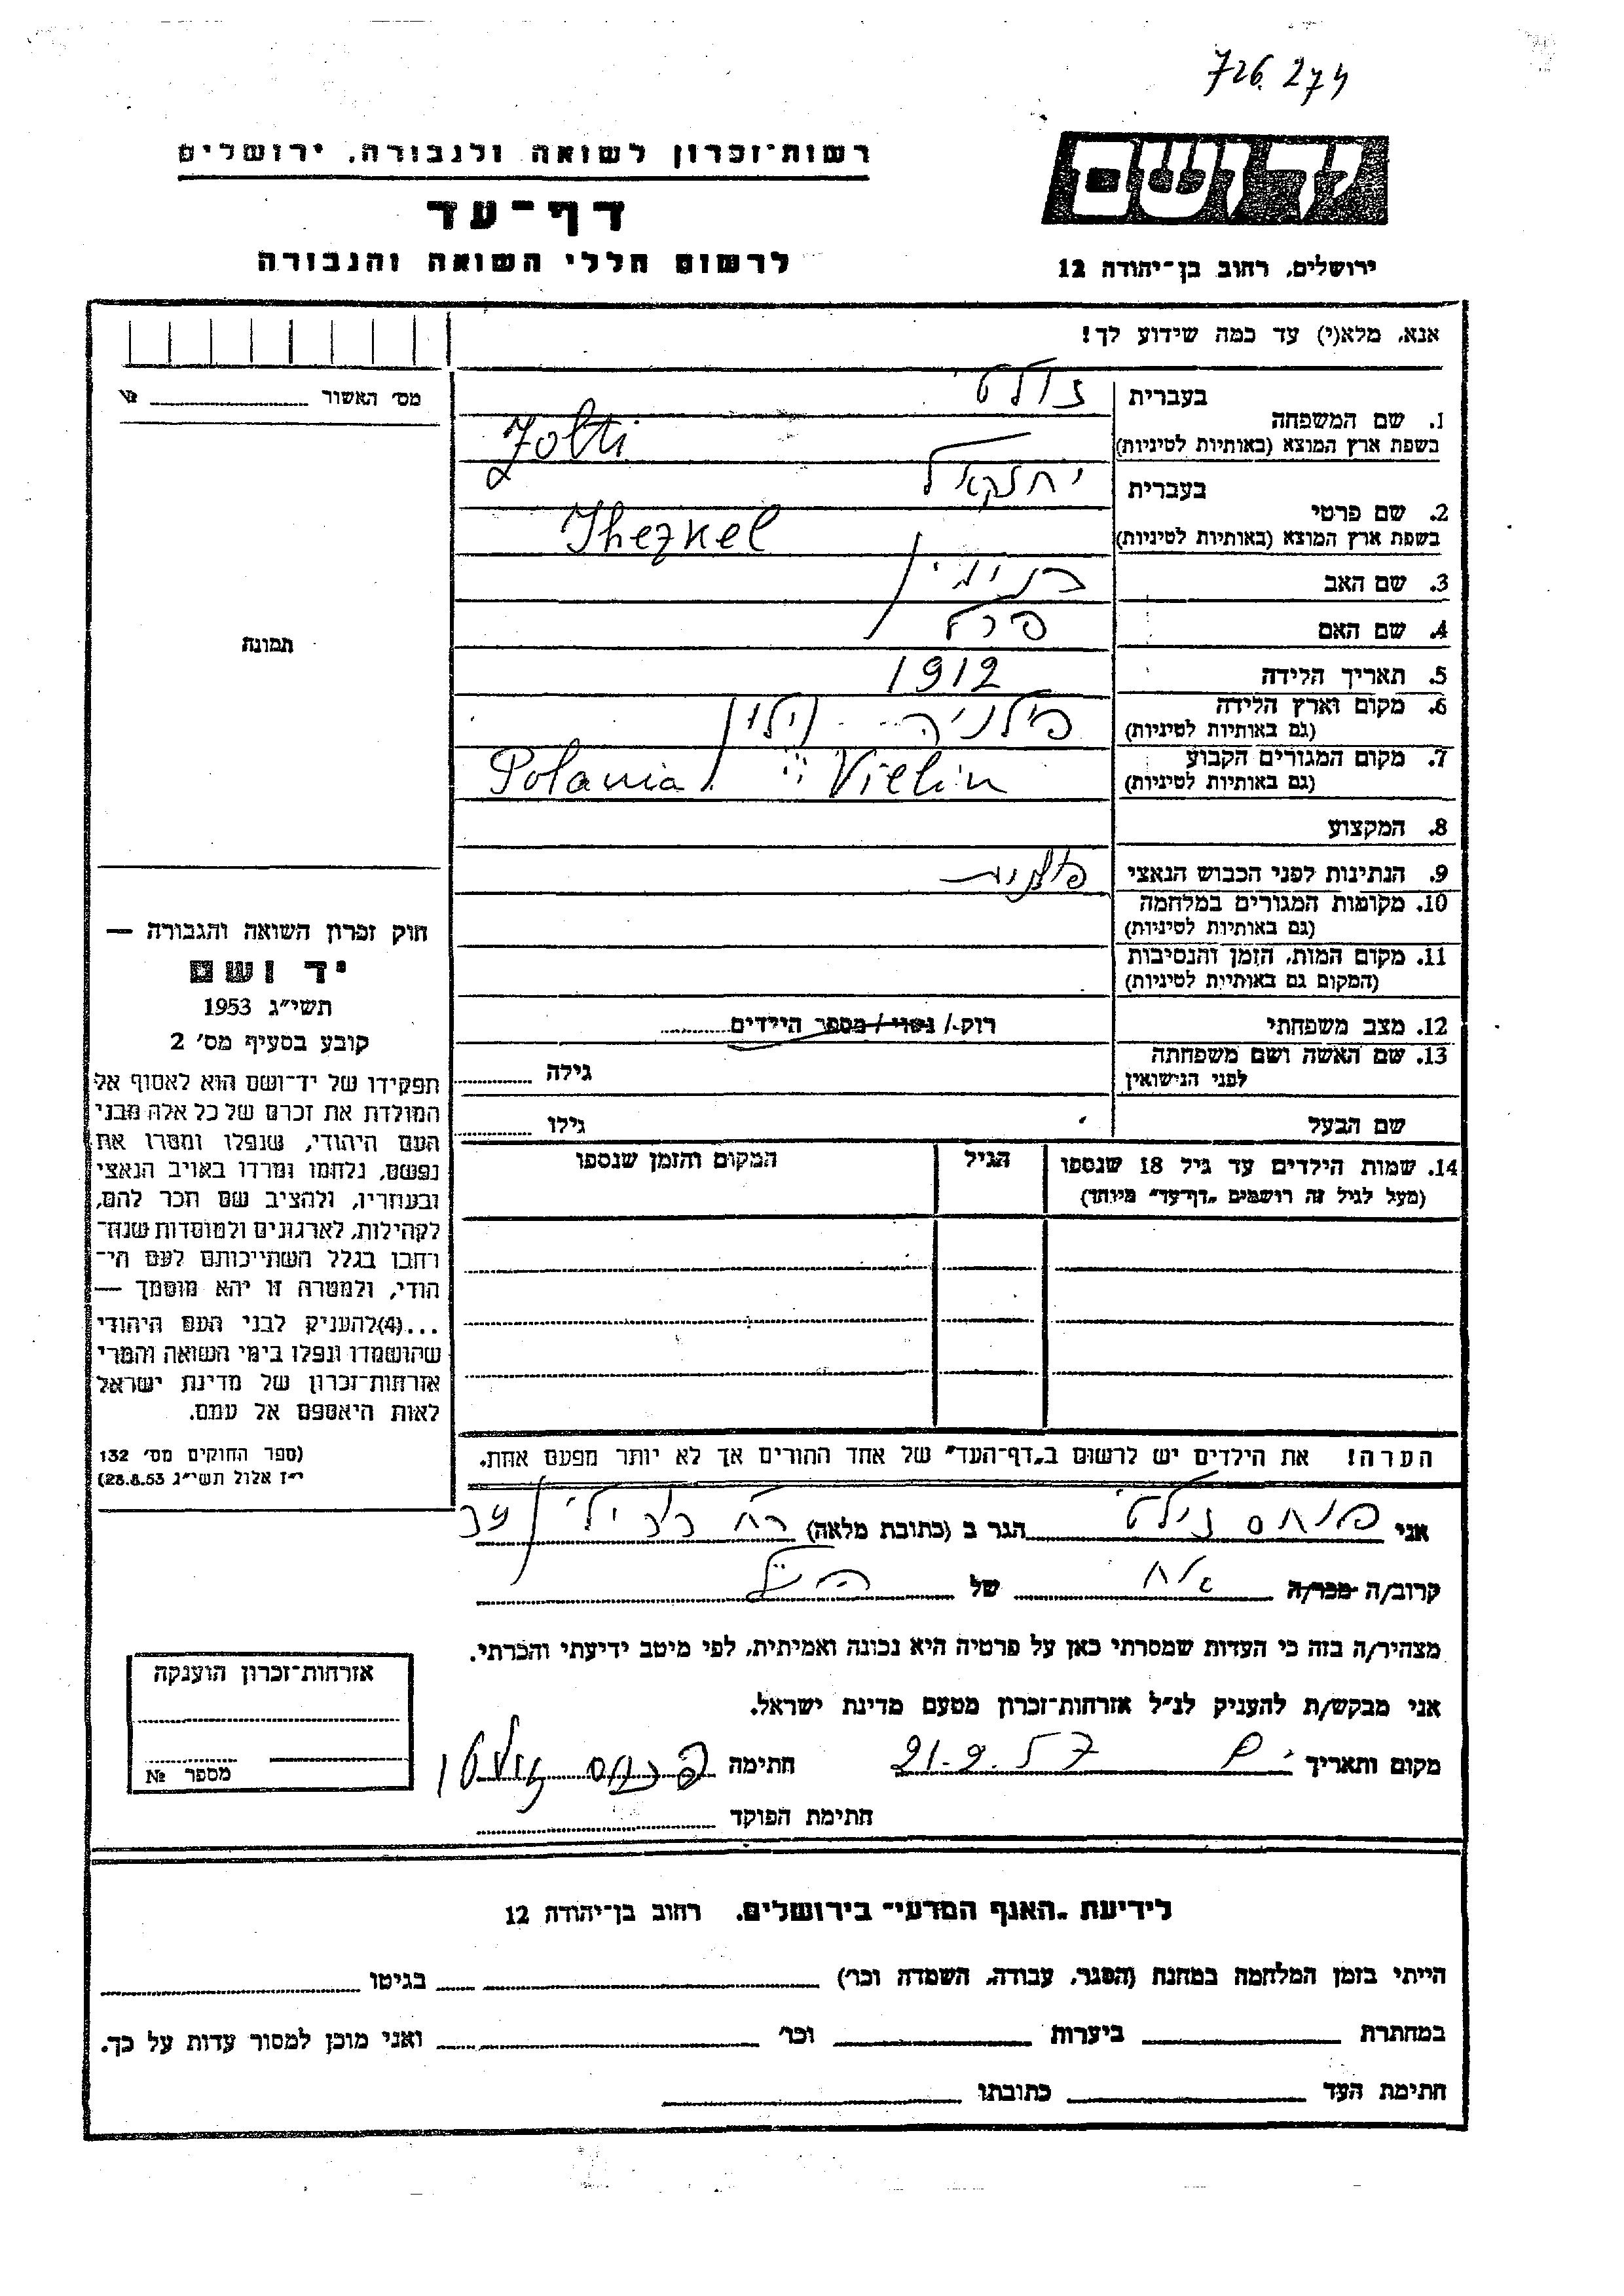 726.274
רשות־זכרון לשואה ולגבורה, ירושלים
יד ושם
דף־עד
לרשום חללי השואה והגבורה
ירושלים, רחוב בן־יהודה 12
אנא, מלא(י) עד כמה שידוע לך!
מס׳ האשור №
בעברית זולטי
1. שם המשפחה
בשפת ארץ המוצא (באותיות לטיניות) Zolti
בעברית יחזקאל
2. שם פרטי
בשפת ארץ המוצא (באותיות לטיניות) Ihezkel
3. שם האב בנימין
4. שם האם פרל
5. תאריך הלידה 1912
6. מקום וארץ הלידה
(גם באותיות לטיניות) פולניה - וילין
7. מקום המגורים הקבוע
(גם באותיות לטיניות) Polania Vielin
8. המקצוע
9. הנתינות לפני הכבוש הנאצי פולנית
10. מקומות המגורים במלחמה
(גם באותיות לטיניות)
11. מקום המות, הזמן והנסיבות
(המקום גם באותיות לטיניות)
12. מצב משפחתי רוק / נשוי / מספר הילדים
13. שם האשה ושם משפחתה
לפני הנישואין גילה
שם הבעל גילו
14. שמות הילדים עד גיל 18 שנספו הגיל המקום והזמן שנספו
(מעל לגיל זה רושמים „דף־עד״ מיוחד)
הערה! את הילדים יש לרשום ב„דף־העד״ של אחד ההורים אך לא יותר מפעם אחת.
תמונה
חוק זכרון השואה והגבורה —
יד ושם
תשי״ג 1953
קובע בסעיף מס׳ 2
תפקידו של יד־ושם הוא לאסוף אל
המולדת את זכרם של כל אלה מבני
העם היהודי, שנפלו ומסרו את
נפשם, נלחמו ומרדו באויב הנאצי
ובעוזריו, ולהציב שם וזכר להם,
לקהילות, לארגונים ולמוסדות שנח־
רבו בגלל השתייכותם לעם הי־
הודי, ולמטרה זו יהא מוסמך —
...(4)להעניק לבני העם היהודי
שהושמדו ונפלו בימי השואה והמרי
אזרחות־זכרון של מדינת ישראל
לאות היאספם אל עמם.
(ספר החוקים מס׳ 132
י״ז אלול תשי״ג 28.8.53)
אני פנחס זולטי הגר ב (כתובת מלאה) רח׳
קרוב/ה מכר/ה אח של הנ״ל
מצהיר/ה בזה כי העדות שמסרתי כאן על פרטיה היא נכונה ואמיתית, לפי מיטב ידיעתי והכרתי.
אני מבקש/ת להעניק לנ״ל אזרחות־זכרון מטעם מדינת ישראל.
מקום ותאריך 21-9.57 חתימה פנחס זולטי
חתימת הפוקד
אזרחות־זכרון הוענקה
מספר №
לידיעת „האגף המדעי״ בירושלים, רחוב בן־יהודה 12
הייתי בזמן המלחמה במחנה (הסגר, עבודה, השמדה וכו׳) בגיטו
במחתרת ביערות וכו׳ ואני מוכן למסור עדות על כך.
חתימת העד כתובתו